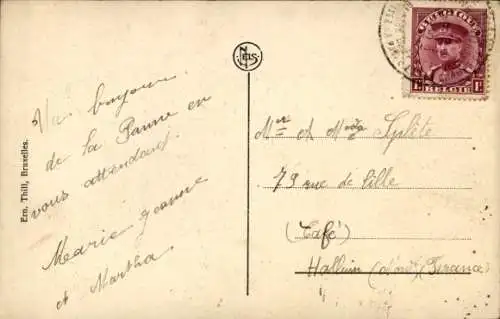 Un bonjour
de la Panne en
vous attendant.
Marie Jeanne
et Martha
Ern. Thill, Bruxelles.
NELS
BELGIQUE
1F 1F
BELGIE
Mr et Mme
79 rue de Lille
(Café)
Halluin (Nord) (France)